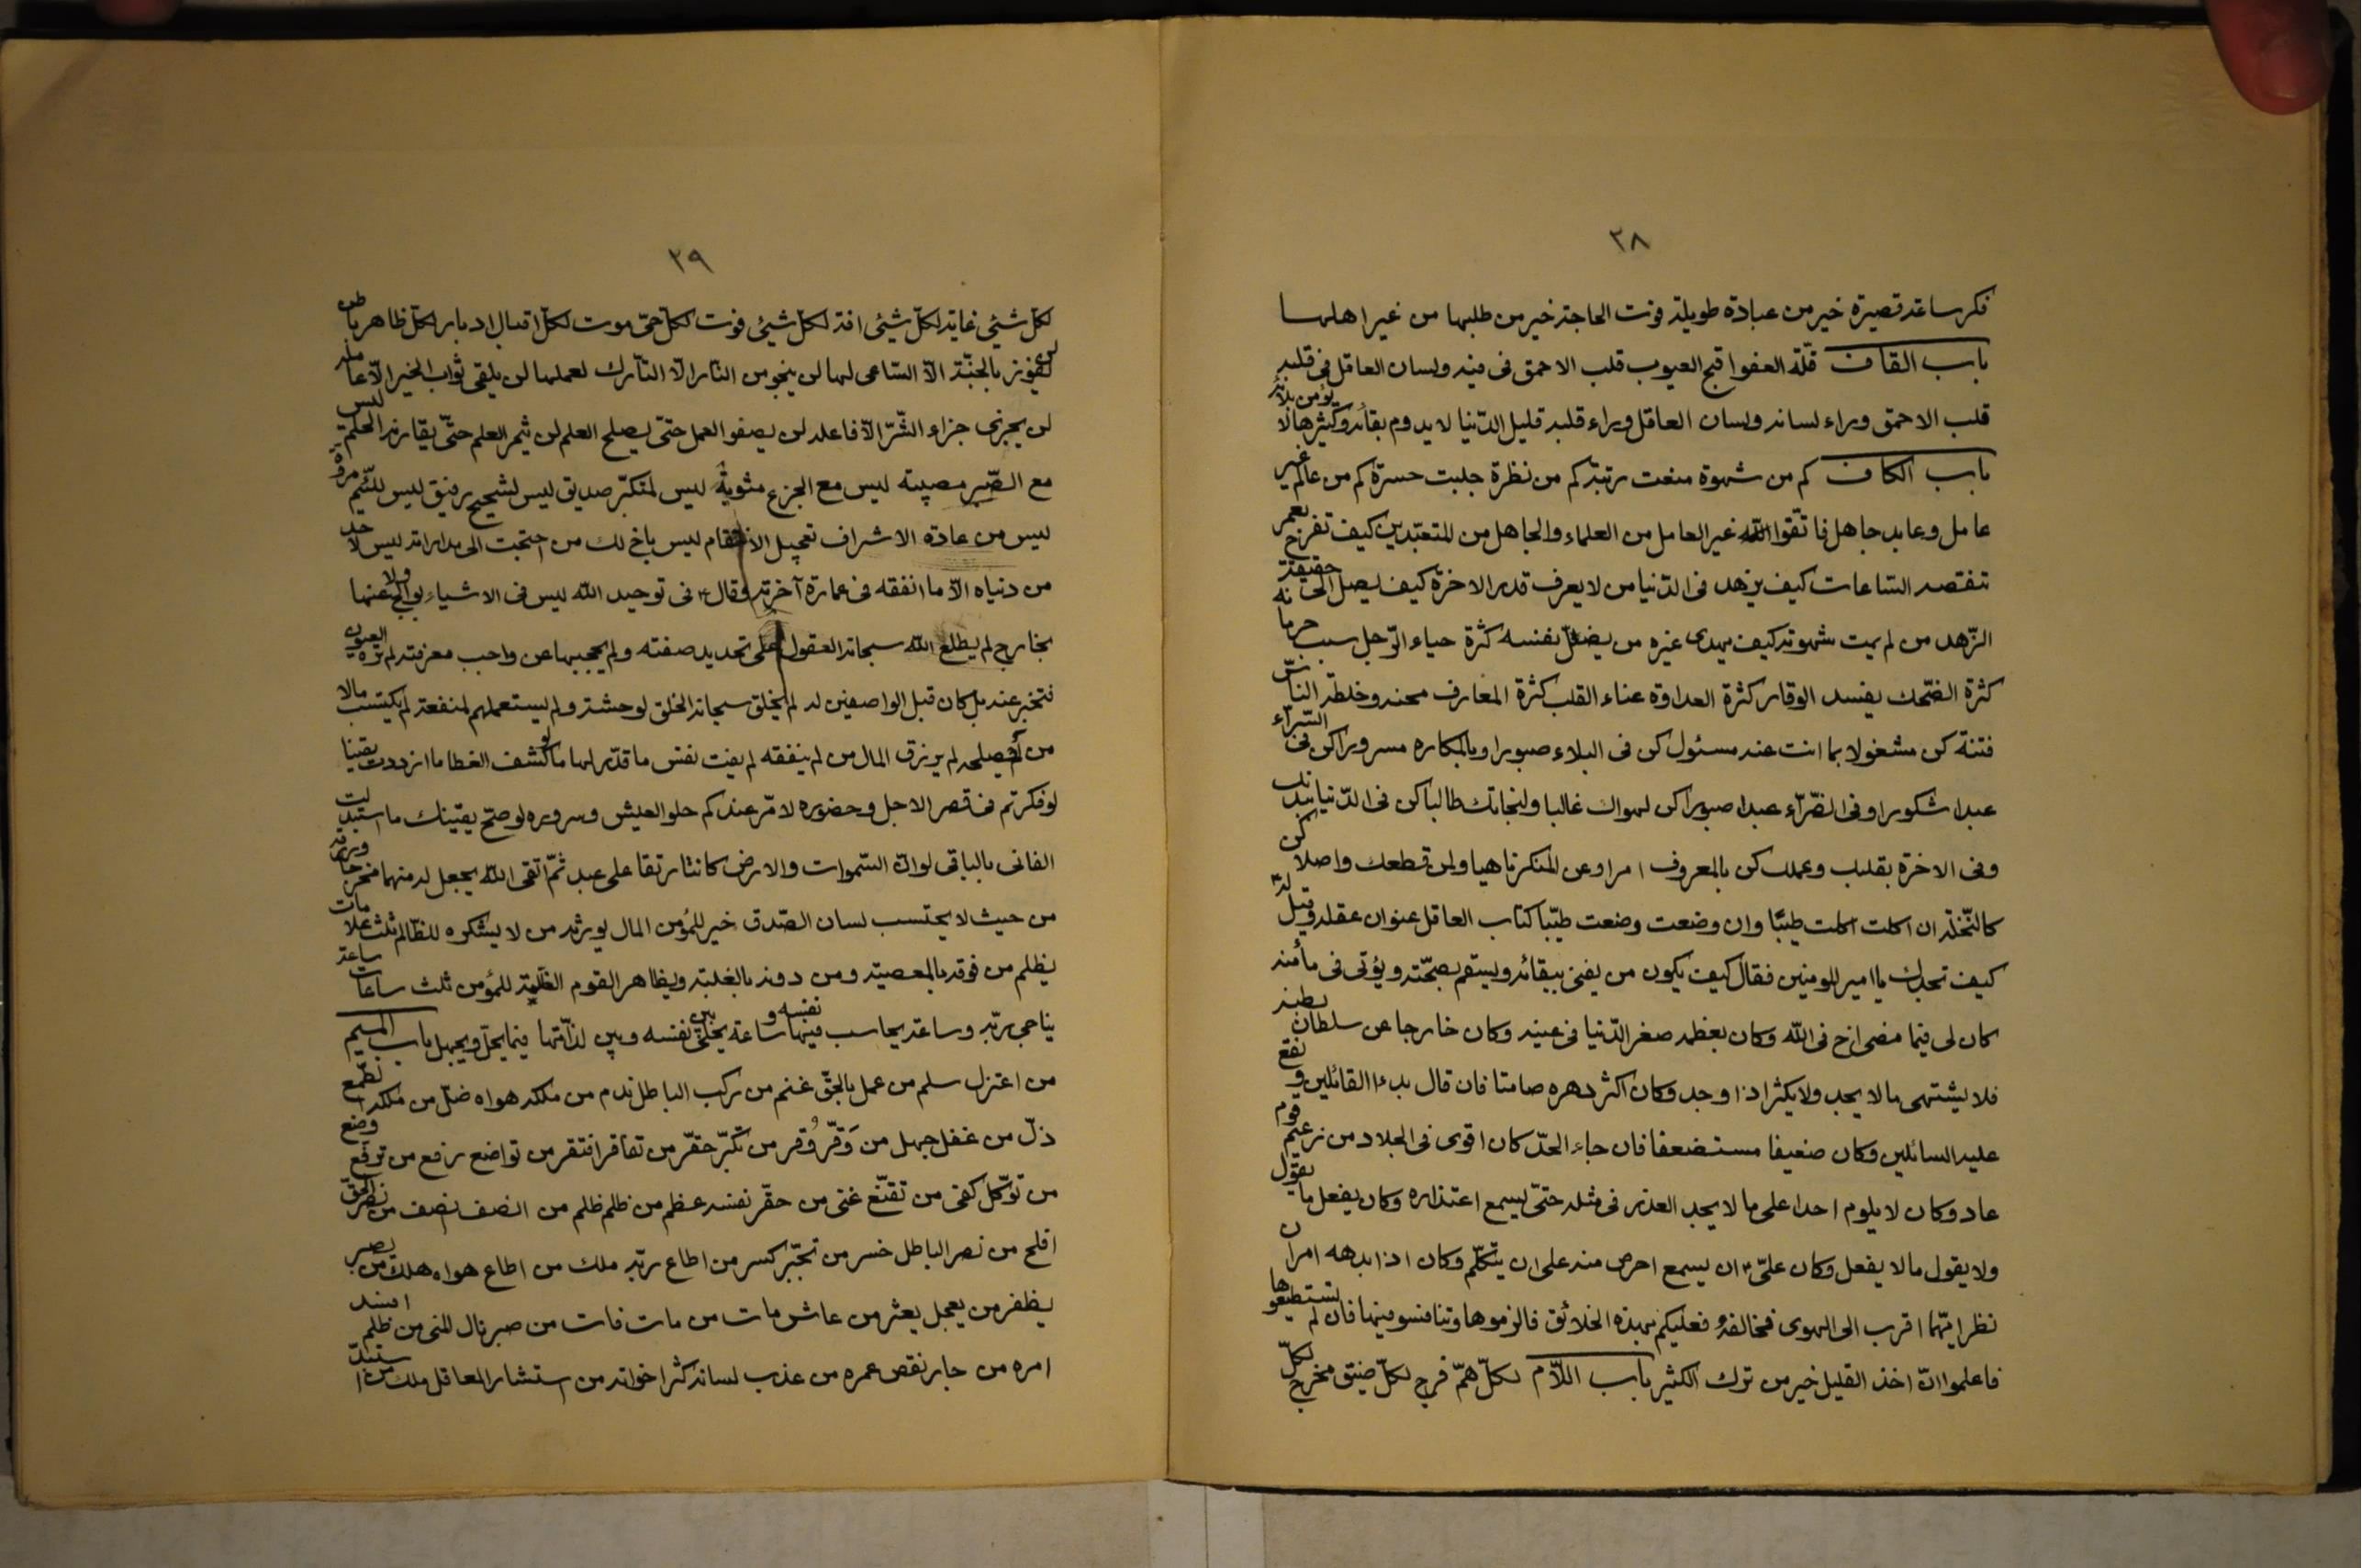 ٢٨
فكر ساعة قصيرة خير من عبادة طويلة فوت الحاجة خير من طلبها من غير اهلها
باب القاف قلّة العفو اقبح العيوب قلب الاحمق فى فيه ولسان العاقل فى قلبه
قلب الاحمق وراء لسانه ولسان العاقل وراء قلبه قليل الدّنيا لا يدوم بقائه وكثيرها لا يؤمن بلائه
باب الكاف كم من شهوة منعت رتبة كم من نظرة جلبت حسرة كم من عالم غير
عامل وعابد جاهل فاتّقوا اللّه غير العامل من العلماء والجاهل من المتعبّدين كيف تفرح بعمر
تنقصه السّاعات كيف يزهد فى الدّنيا من لا يعرف قدر الاخرة كيف يصل الى حقيقة
الزّهد من لم يمت شهوته كيف يهدى غيره من يضلّ نفسه كثرة حياء الرّجل سبب حرمانه
كثرة الضّحك يفسد الوقار كثرة العداوة عناء القلب كثرة المعارف محنه وخلطة النّاس
فتنة كن مشغولا بما انت عنه مسئول كن فى البلاء صبورا وبالمكاره مسرورا كن فى السّرّاء
عبدا شكورا وفى الضّرّاء عبدا صبورا كن لهواك غالبا ولنجاتك طالبا كن فى الدّنيا ببدنك
وفى الاخرة بقلبك وعملك كن بالمعروف امرا وعن المنكر ناهيا ولمن قطعك واصلا كن
كالنّخلة ان اكلت اكلت طيبًا وان وضعت وضعت طيّبا كتاب العاقل عنوان عقله وقيل له
كيف تجدك يا امير المومنين فقال كيف يكون من يفنى ببقائه ويسقم بصحّته ويؤتى فى مأمنه
كان لى فيما مضى اخ فى اللّه وكان يعظمه صغر الدّنيا فى عينه وكان خارجا عن سلطان بطنه
فلا يشتهى ما لا يجد ولا يكثر اذا وجد وكان اكثر دهره صامتا فان قال بدء القائلين ونقع
عليه السائلين وكان ضعيفا مستضعفا فان جاء الجدّ كان اقوى فى الجلاد من زعيم قوم
عاد وكان لا يلوم احدا على ما لا يجد العذر فى مثله حتّى يسمع اعتذاره وكان يفعل ما يقول
ولا يقول ما لا يفعل وكان علىّ ان يسمع احرص منه على ان يتكلّم وكان اذا بدهه امران
نظر ايّهما اقرب الى الهوى فخالفه فعليكم بهذه الخلائق فالزموها وتنافسو فيها فان لم تستطيعوها
فاعلموا انّ اخذ القليل خير من ترك الكثير باب اللّام لكلّ همّ فرج لكلّ ضيق مخرج لكلّ
٢٩
لكلّ شيئ غاية لكلّ شيئ افة لكلّ شيئ فوت لكلّ حىّ موت لكلّ اقبال ادبار لكلّ ظاهر باطن
لن يفوز بالجنّة الّا السّاعى لها لن ينجو من النّار الّا التّارك لعملها لن يلقى ثواب الخير الّا عامله
لن يجزى جزاء الشّرّ الّا فاعله لن يصفو العمل حتّى يصلح العلم لن يثمر العلم حتّى يقارنه الحلم ليس
مع الصّبر مصيبة ليس مع الجزع مثوبة ليس لمتكبّر صديق ليس لشحيح رفيق ليس للئيم مروّة
ليس من عادة الاشراف تعجيل الانتقام ليس باخ لك من احتجت الى مداراته ليس لاحد
من دنياه الّا ما انفقه فى عمارة آخرته وقال فى توحيد اللّه ليس فى الاشياء بوالج ولا عنها
بخارج لم يطلع اللّه سبحانه العقول على تحديد صفته ولم يحجبها عن واجب معرفته لم تره العيون
فتخبر عنه بل كان قبل الواصفين له لم يخلق سبحانه الخلق لوحشة ولم يستعملهم لمنفعة لم يكتسب مالا
من لم يصلحه لم يرزق المال من لم ينفقه لم يفت نفس ما قدّر لها لو كشف الغطا ما ازددت يقينا
لو فكرتم فى قصر الاجل وحضوره لامرّ عندكم حلو العيش وسروره لو صحّ يقينك ما استبدلت
الفانى بالباقى لو انّ السّموات والارض كانتا رتقا على عبد ثمّ اتقى اللّه يجعل له منهما مخرجا ويرزقه
من حيث لا يحتسب لسان الصّدق خير للمؤمن المال يورثه من لا يشكره للظّالم ثلث علامات
يظلم من فوقه بالمعصية ومن دونه بالغلبة ويظاهر القوم الظّلمة للمؤمن ثلث ساعات ساعة
يناجى ربّه وساعة يحاسب فيها نفسه وساعة يخلّى بين نفسه وبين لذّتها فيما يحلّ ويجمل باب الميم
من اعتزل سلم من عمل بالحقّ غنم من ركب الباطل ندم من ملكه هواه ضلّ من ملكه الطّمع
ذلّ من غفل جهل من وَقّر وُقر من تكبّر حقّر من تفاقر افتقر من تواضع رفع من ترفّع وضع
من توكّل كفى من تقنّع غنى من حقّر نفسه عظم من ظلم ظلم من انصف انصف من نصر الحقّ
افلح من نصر الباطل خسر من تجبّر كسر من اطاع ربّه ملك من اطاع هواه هلك من يصبر
يظفر من يعجل يعثر من عاش مات من مات فات من صبر نال المنى من ظلم افسد
امره من جار نقص عمره من عذب لسانه كثر اخوانه من استشار العاقل ملك من استبدّ